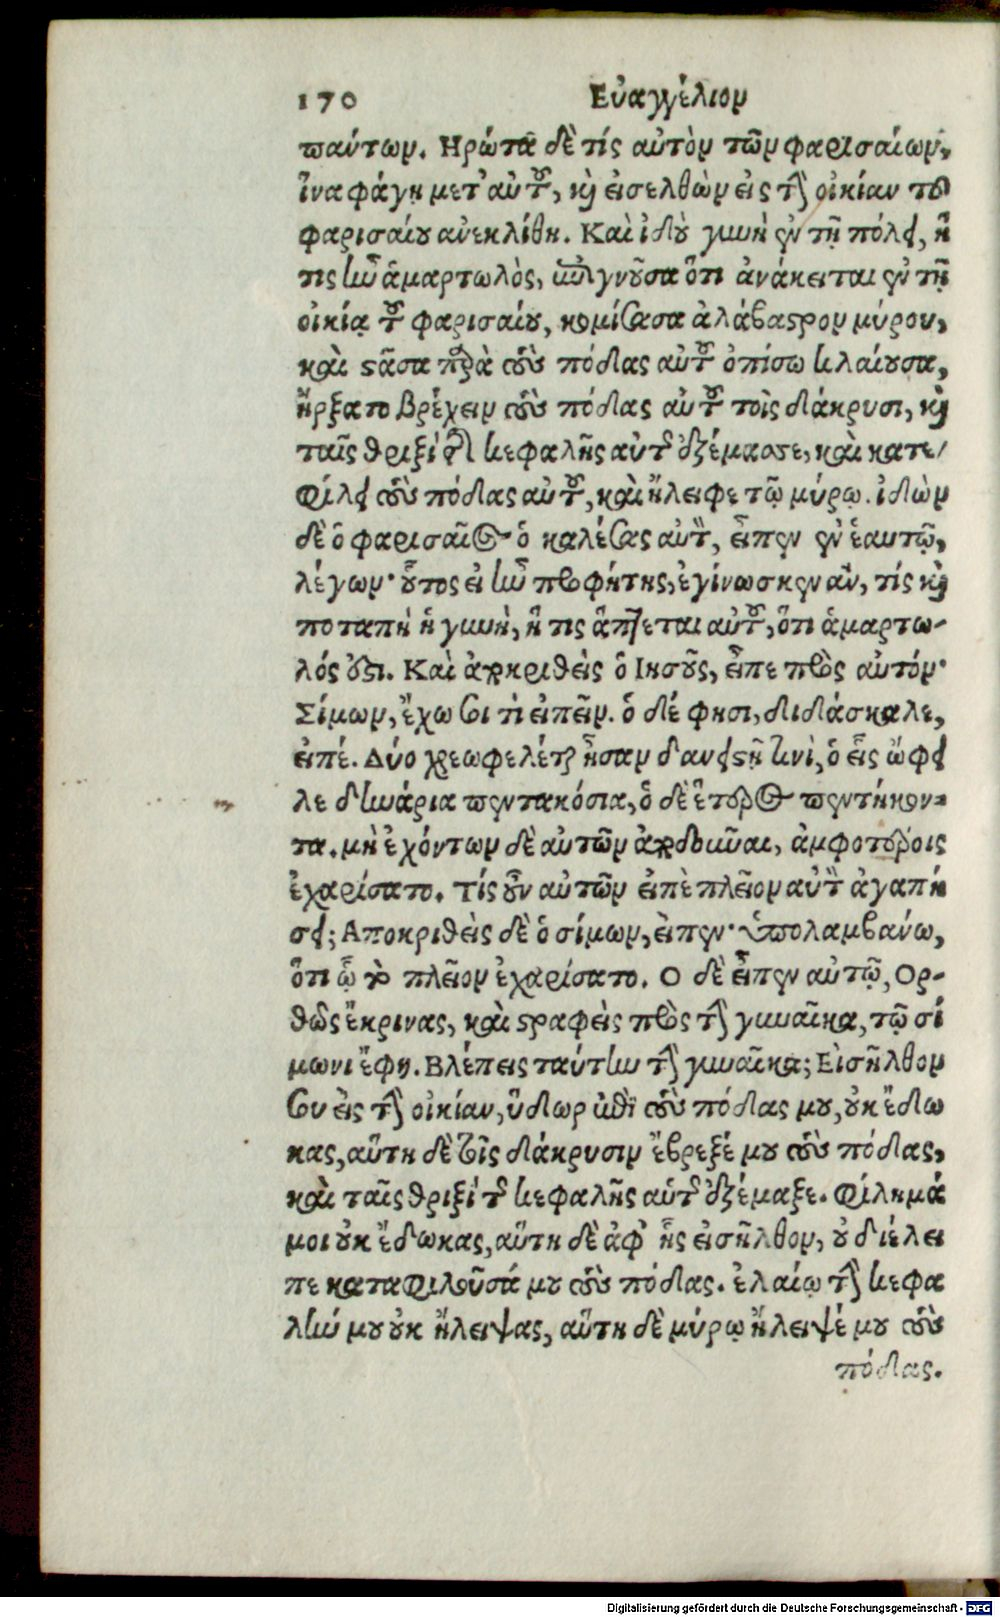 170 Εὐαγγέλιον
πάντων. Ηρώτα δὲ τίς αὐτὸν τῶν φαρισαίων,
ἵνα φάγῃ μετ' αὐτοῦ, καὶ εἰσελθὼν εἰς τὴν οἰκίαν τοῦ
φαρισαίου ἀνεκλίθη. Καὶ ἰδοὺ γυνὴ ἐν τῇ πόλει, ἥ
τις ἦν ἁμαρτωλὸς, ἐπιγνοῦσα ὅτι ἀνάκειται ἐν τῇ
οἰκίᾳ τοῦ φαρισαίου, κομίσασα ἀλάβαστρον μύρου,
καὶ στᾶσα παρὰ τοὺς πόδας αὐτοῦ ὀπίσω κλαίουσα,
ἤρξατο βρέχειν τοὺς πόδας αὐτοῦ τοῖς δάκρυσι, καὶ
ταῖς θριξὶ τῆς κεφαλῆς αὐτῆς ἐξέμασσε, καὶ κατε/
φίλει τοὺς πόδας αὐτοῦ, καὶ ἤλειφε τῷ μύρῳ. ἰδὼν
δὲ ὁ φαρισαῖος ὁ καλέσας αὐτὸν, εἶπεν ἐν ἑαυτῷ,
λέγων· οὗτος εἰ ἦν προφήτης, ἐγίνωσκεν ἂν, τίς καὶ
ποταπὴ ἡ γυνὴ, ἥ τις ἅπτεται αὐτοῦ, ὅτι ἁμαρτω-
λός ἐστι. Καὶ ἀποκριθεὶς ὁ Ιησοῦς, εἶπε πρὸς αὐτόν·
Σίμων, ἔχω σοι τὶ εἰπεῖν. ὁ δέ φησι, διδάσκαλε,
εἰπέ. Δύο χρεωφελέται ἦσαν δανειστῇ τινὶ, ὁ εἷς ὤφει
λε δηνάρια πεντακόσια, ὁ δὲ ἕτερος πεντήκον-
τα. μὴ ἐχόντων δὲ αὐτῶν ἀποδοῦναι, ἀμφοτέροις
ἐχαρίσατο. Τίς οὖν αὐτῶν εἰπὲ πλεῖον αὐτὸν ἀγαπή
σει; Αποκριθεὶς δὲ ὁ σίμων, εἶπεν· ὑπολαμβάνω,
ὅτι ᾧ τὸ πλεῖον ἐχαρίσατο. Ο δὲ εἶπεν αὐτῷ, Ορ-
θῶς ἔκρινας, καὶ στραφεὶς πρὸς τὴν γυναῖκα, τῷ σί
μωνι ἔφη. Βλέπεις ταύτην τὴν γυναῖκα; Εἰσῆλθον
σου εἰς τὴν οἰκίαν, ὕδωρ ἐπὶ τοὺς πόδας μου, οὐκ ἔδω
κας, αὕτη δὲ τοῖς δάκρυσιν ἔβρεξέ μου τοὺς πόδας,
καὶ ταῖς θριξὶ τῆς κεφαλῆς αὑτῆς ἐξέμαξε. Φίλημά
μοι οὐκ ἔδωκας, αὕτη δὲ ἀφ' ἧς εἰσῆλθον, οὐ διέλει
πε καταφιλοῦσά μου τοὺς πόδας. ἐλαίῳ τὴν κεφα
λήν μου οὐκ ἤλειψας, αὕτη δὲ μύρῳ ἤλειψέ μου τοὺς
πόδας.
Digitalisierung gefördert durch die Deutsche Forschungsgemeinschaft - DFG